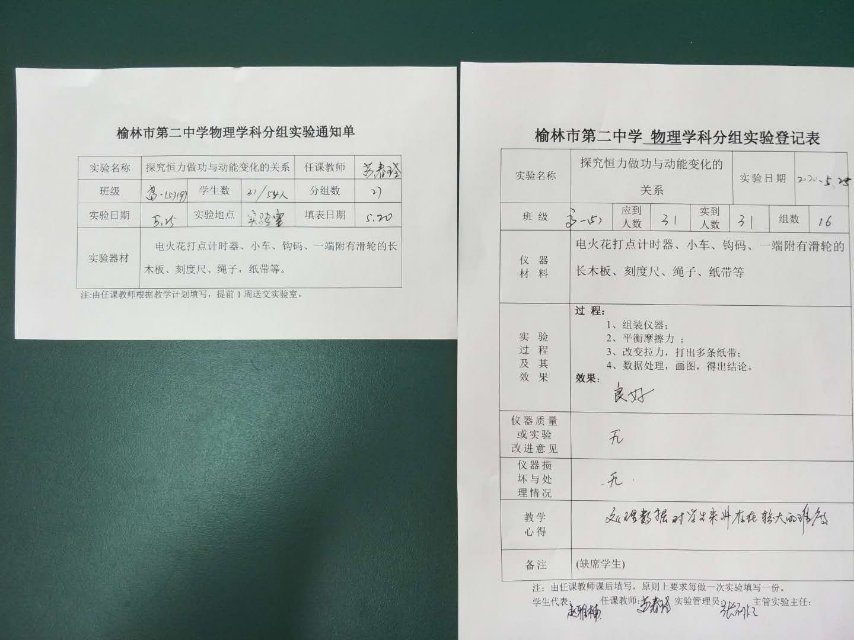 榆林市第二中学物理学科分组实验通知单
实验名称 探究恒力做功与动能变化的关系 任课教师
班级 学生数 分组数 27
实验日期 5.25 实验地点 实验室 填表日期 5.20
实验器材 电火花打点计时器、小车、钩码、一端附有滑轮的长
木板、刻度尺、绳子，纸带等。
注:由任课教师根据教学计划填写，提前1周送交实验室。
榆林市第二中学 物理学科分组实验登记表
实验名称 探究恒力做功与动能变化的
关系 实验日期 2020.5.25
班 级 应到人数 31 实到人数 31 组数 16
仪 器
材 料
电火花打点计时器、小车、钩码、一端附有滑轮的
长木板、刻度尺、绳子、纸带等
实 验
过 程
及 其
效 果
过 程：
1、组装仪器；
2、平衡摩擦力 ；
3、改变拉力，打出多条纸带；
4、数据处理，画图，得出结论。
效果：
良好
仪器质量
或实验
改进意见
无
仪器损
坏与处
理情况
无
教学
心得
处理数据对学生来讲存在较大的难度
备注 (缺席学生)
注：由任课教师课后填写，原则上要求每做一次实验填写一份。
学生代表： 任课教师: 实验管理员: 主管实验主任: